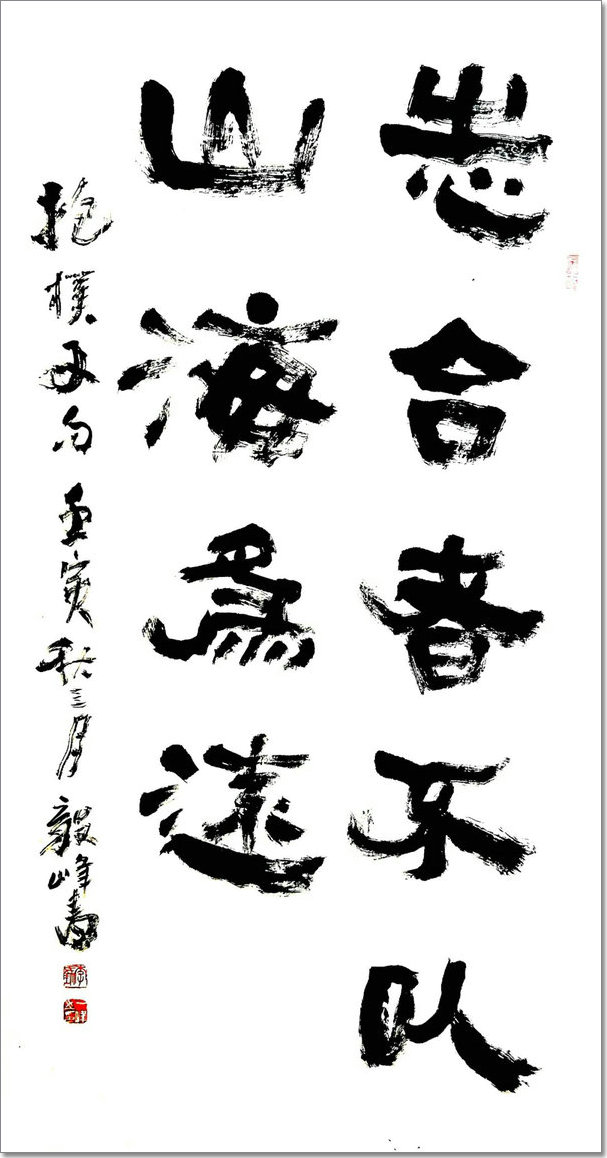 志合者不以
山海為遠
抱樸子句 壬寅秋三月 毅峰書